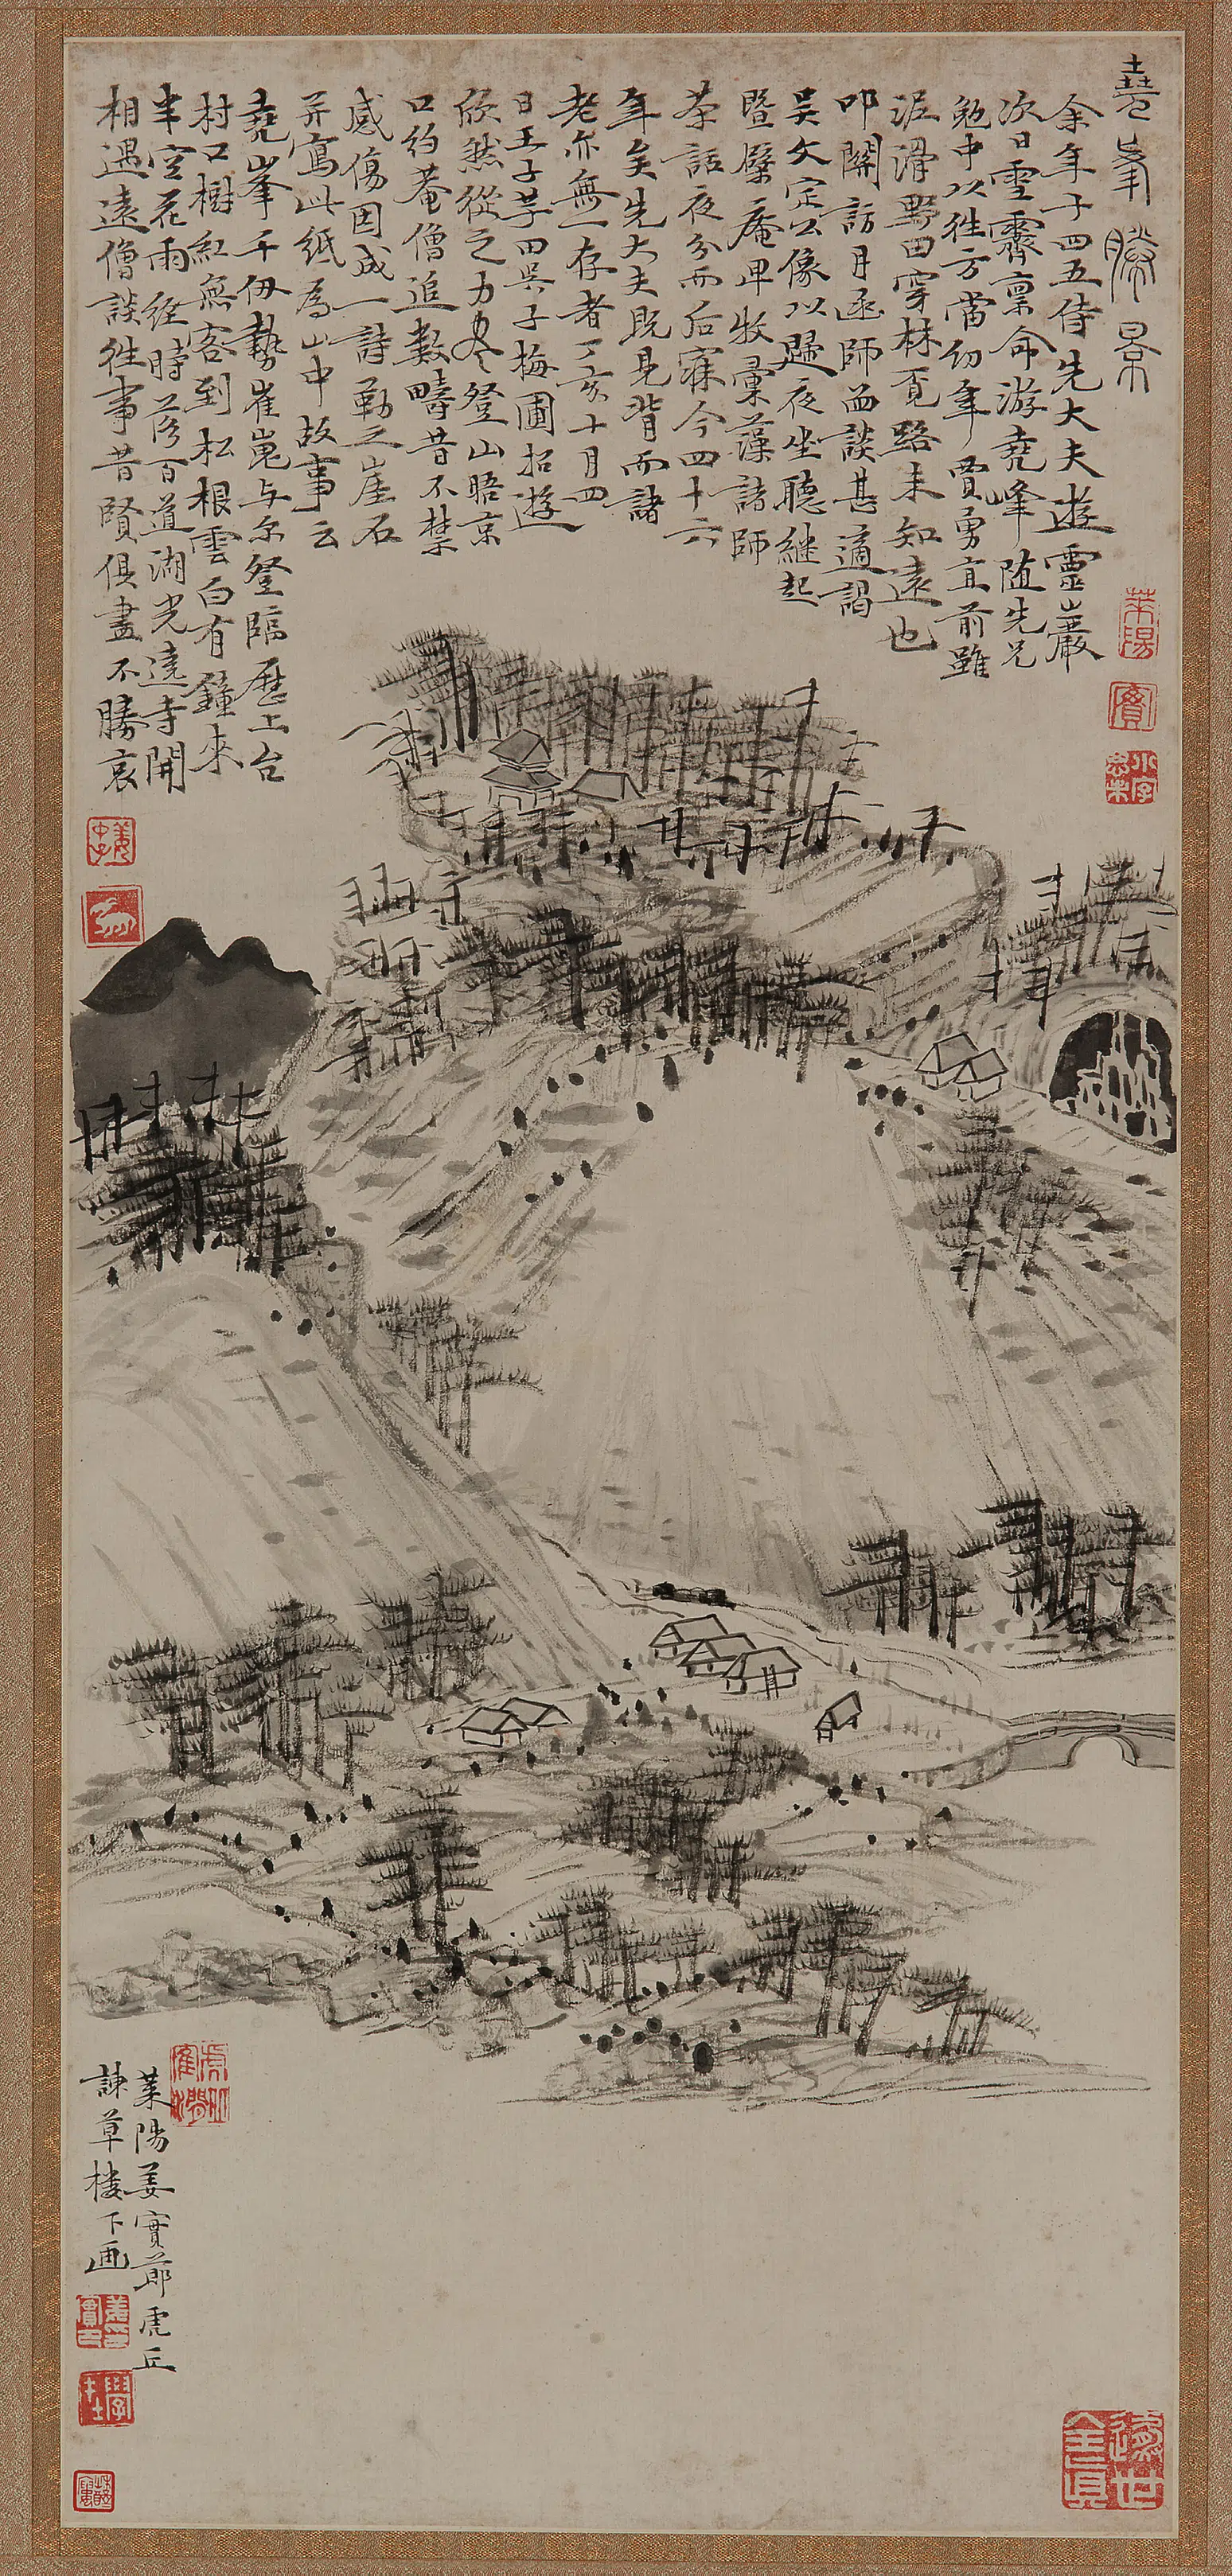 堯峯勝景
余年十四五侍先大夫遊靈巖
次日雪霽稟命游堯峰随先兄
勉中以往方當幼年賈勇直前雖
泥滑野田穿林覓路未知遠也
叩關訪月函師茵談甚適謁
吴文定公像以歸夜坐聽繼起
暨檗庵卑牧藁菴諸師
茶話夜分而后寐今四十六
年矣先大夫既見背而諸
老亦無一存者丁亥十月四
日王子芋田吳子梅圃招遊
欣然從之力疲登山晤京
口約菴僧追數疇昔不禁
感傷因成一詩勒之崖石
并寫此紙為山中故事云
堯峯千仞勢崔嵬与尔登臨歷上台
村口樹紅無客到松根雲白有鐘來
半空花雨經時落百道湖光遶寺開
相遇遠僧談往事昔賢俱盡不勝哀
萊陽
實
學在
姜
仲子
萊陽姜實莭虎丘
諫草樓下画
學在